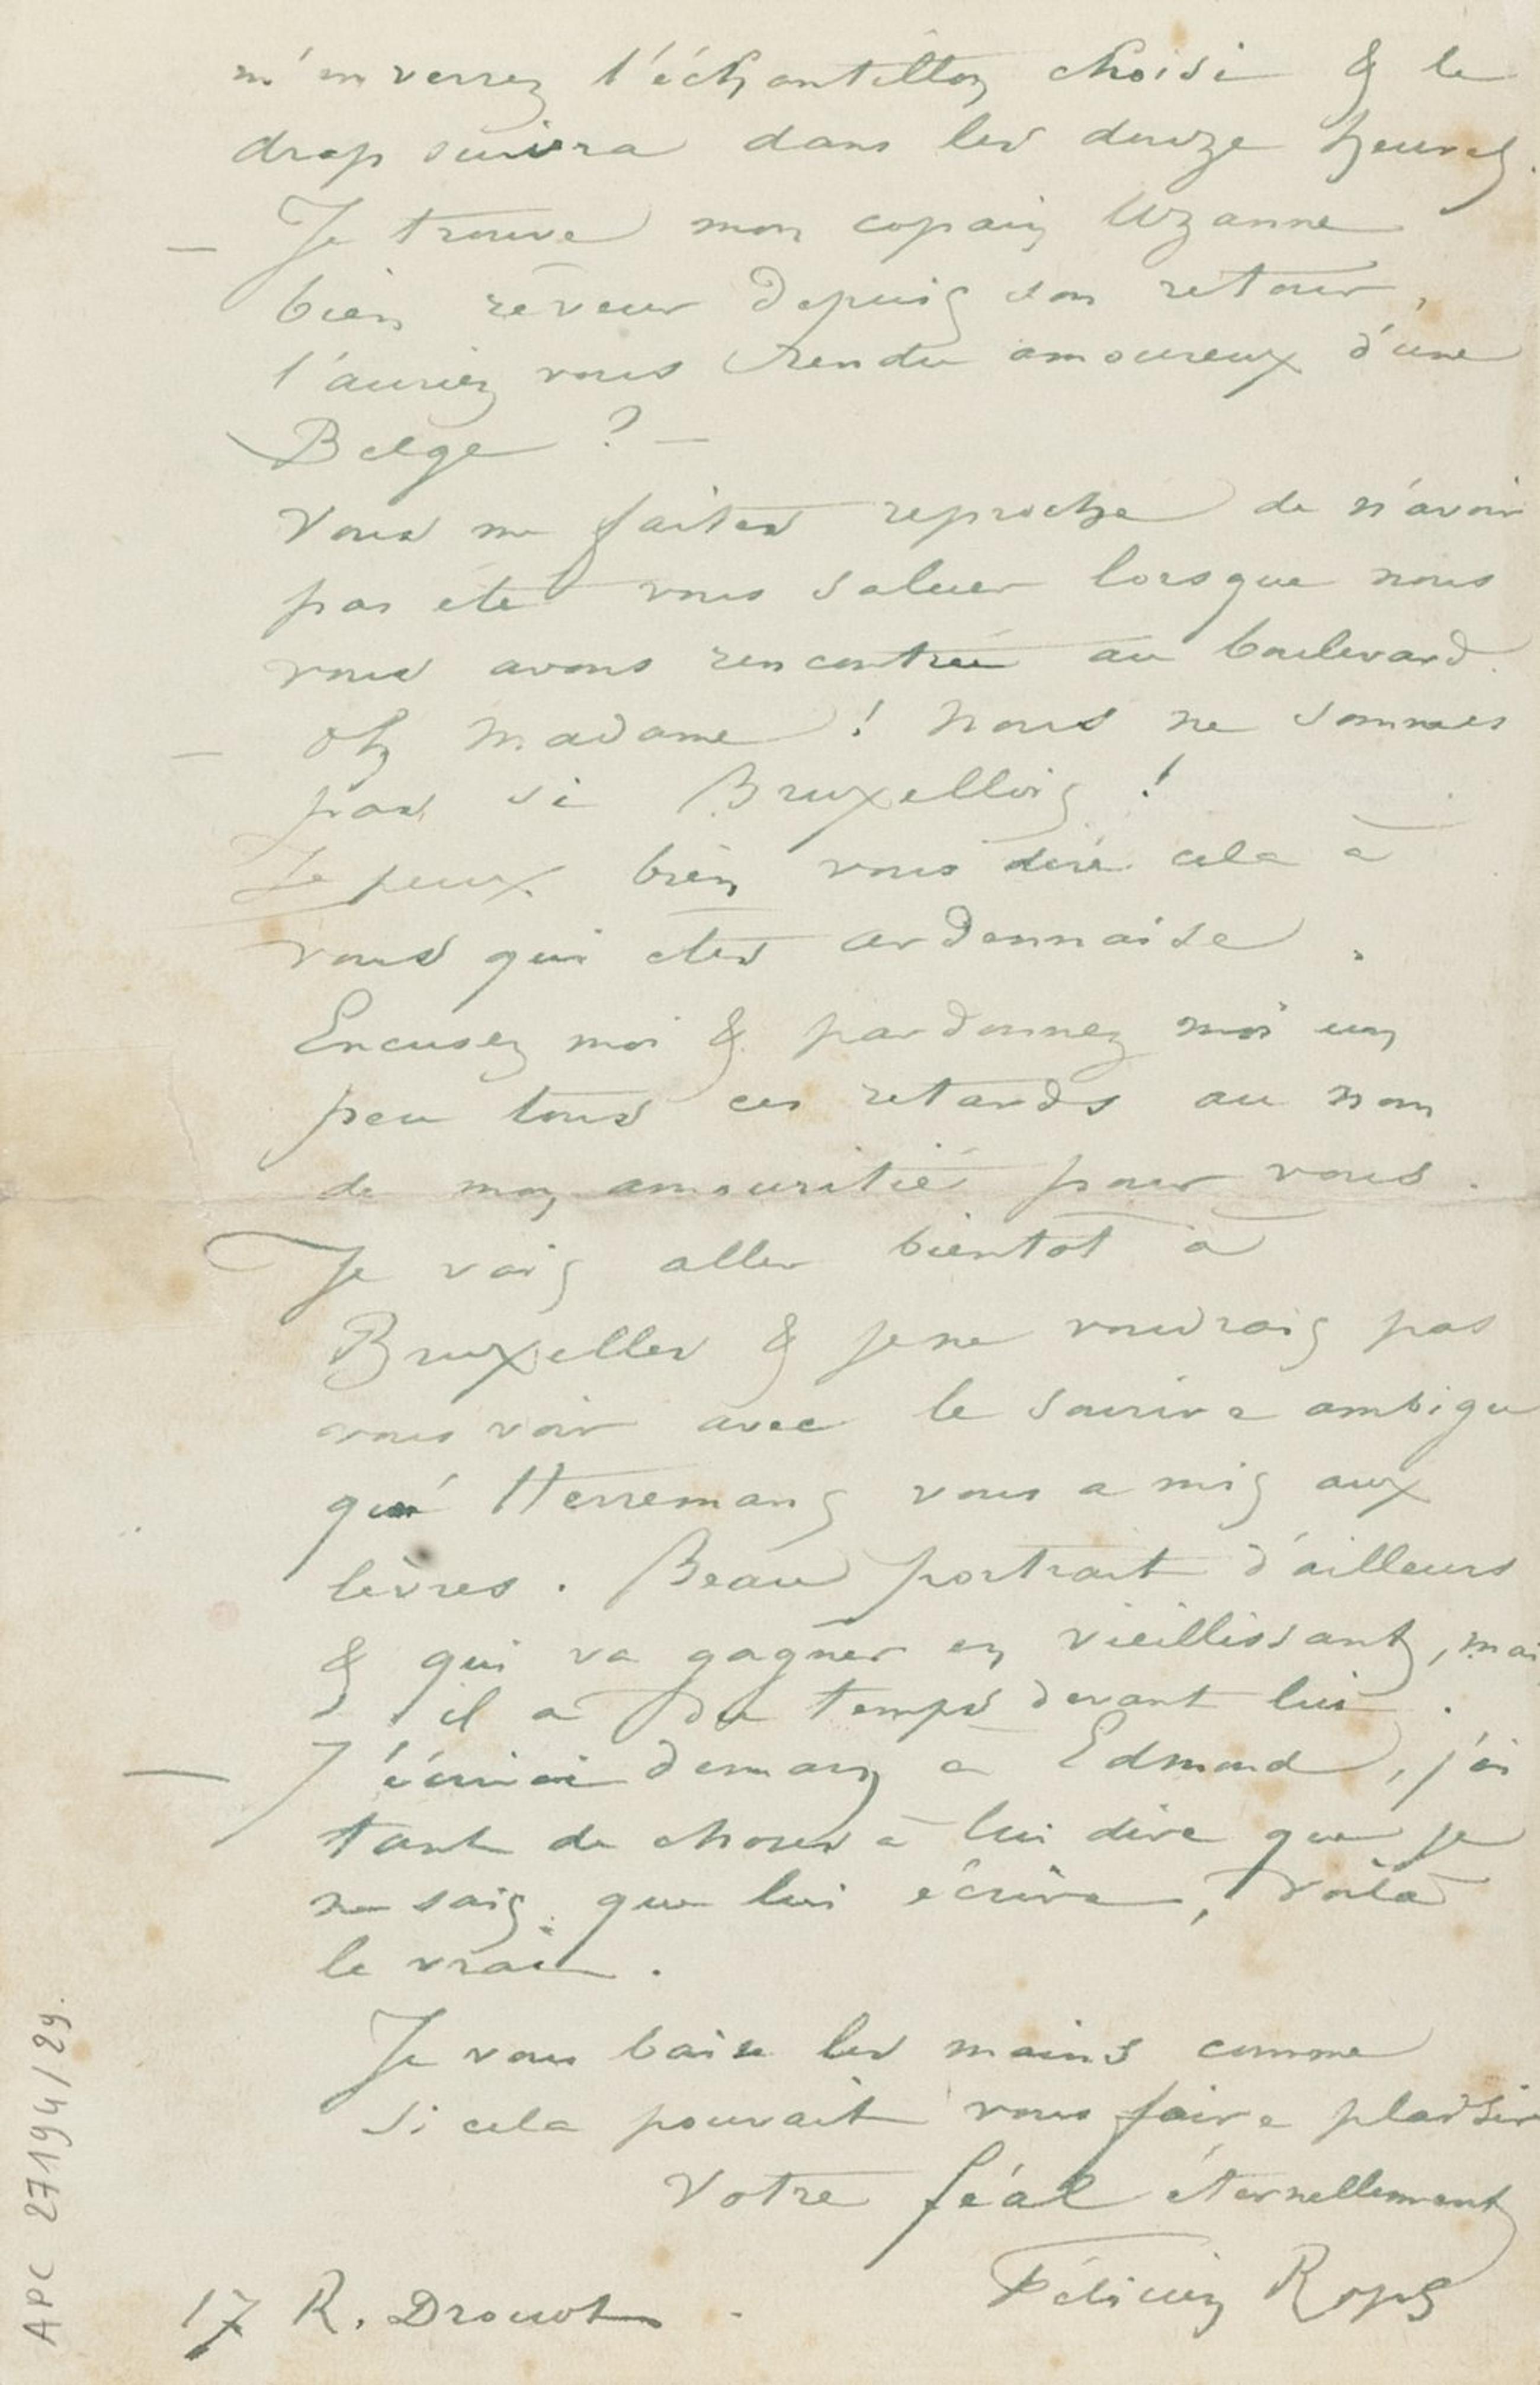 m'enverrez l'échantillon choisi & le
drap suivra dans les douze heures.
— Je trouve mon copain Uzanne
bien rêveur depuis son retour,
l'auriez vous rendu amoureux d'une
Belge ? —
Vous me faites reproche de n'avoir
pas été vous saluer lorsque nous
vous avons rencontrée au boulevard.
— Oh Madame ! Nous ne sommes
pas si Bruxellois !
Je peux bien vous dire cela à
vous qui etes ardennaise.
Excusez moi & pardonnez moi un
peu tous ces retards au nom
de mon amouritié pour vous.
Je vais aller bientot à
Bruxelles & je ne voudrais pas
vous voir avec le sourire ambigu
qu' Herremans vous a mis aux
lèvres. Beau portrait d'ailleurs
& qui va gagner en vieillissant, mai
il a du temps devant lui.
— J'écrirai demain à Edmond, j'ai
tant de choses à lui dire que je
ne sais que lui écrire, voilà
le vrai.
Je vous baise les mains comme
si cela pouvait vous faire plaisir
Votre féal éternellement
Félicien Rops
17 R. Drouot.
APC 27194/29.